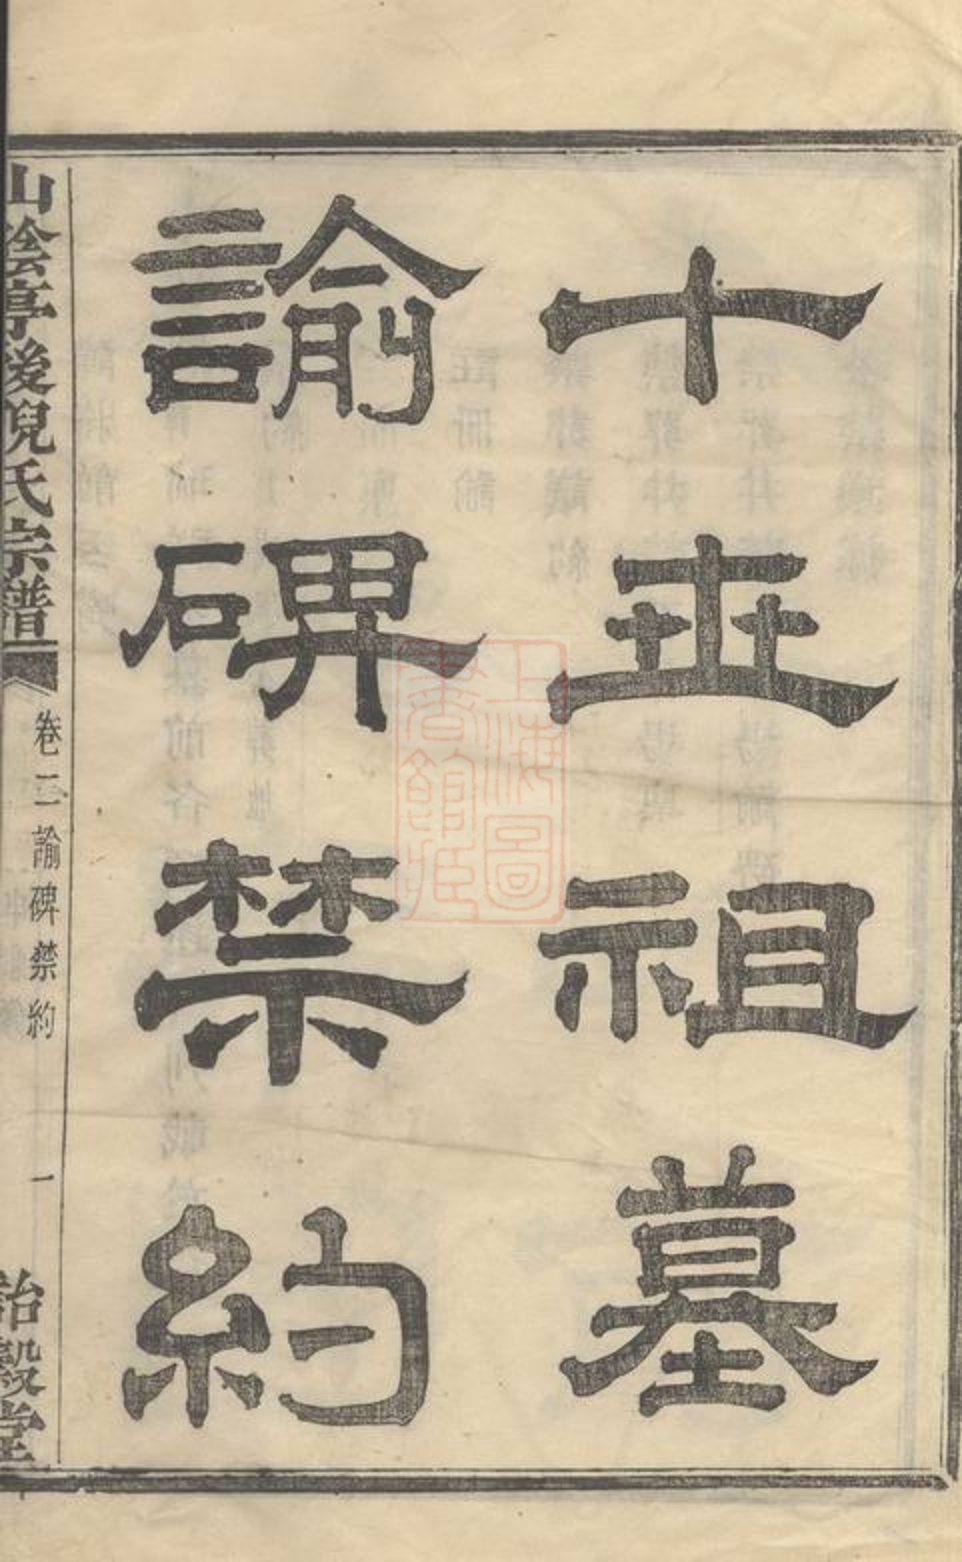 十世祖墓
諭碑禁約
山陰亭後倪氏宗譜
卷三 諭碑禁約
一
詒穀堂
上海圖書館藏